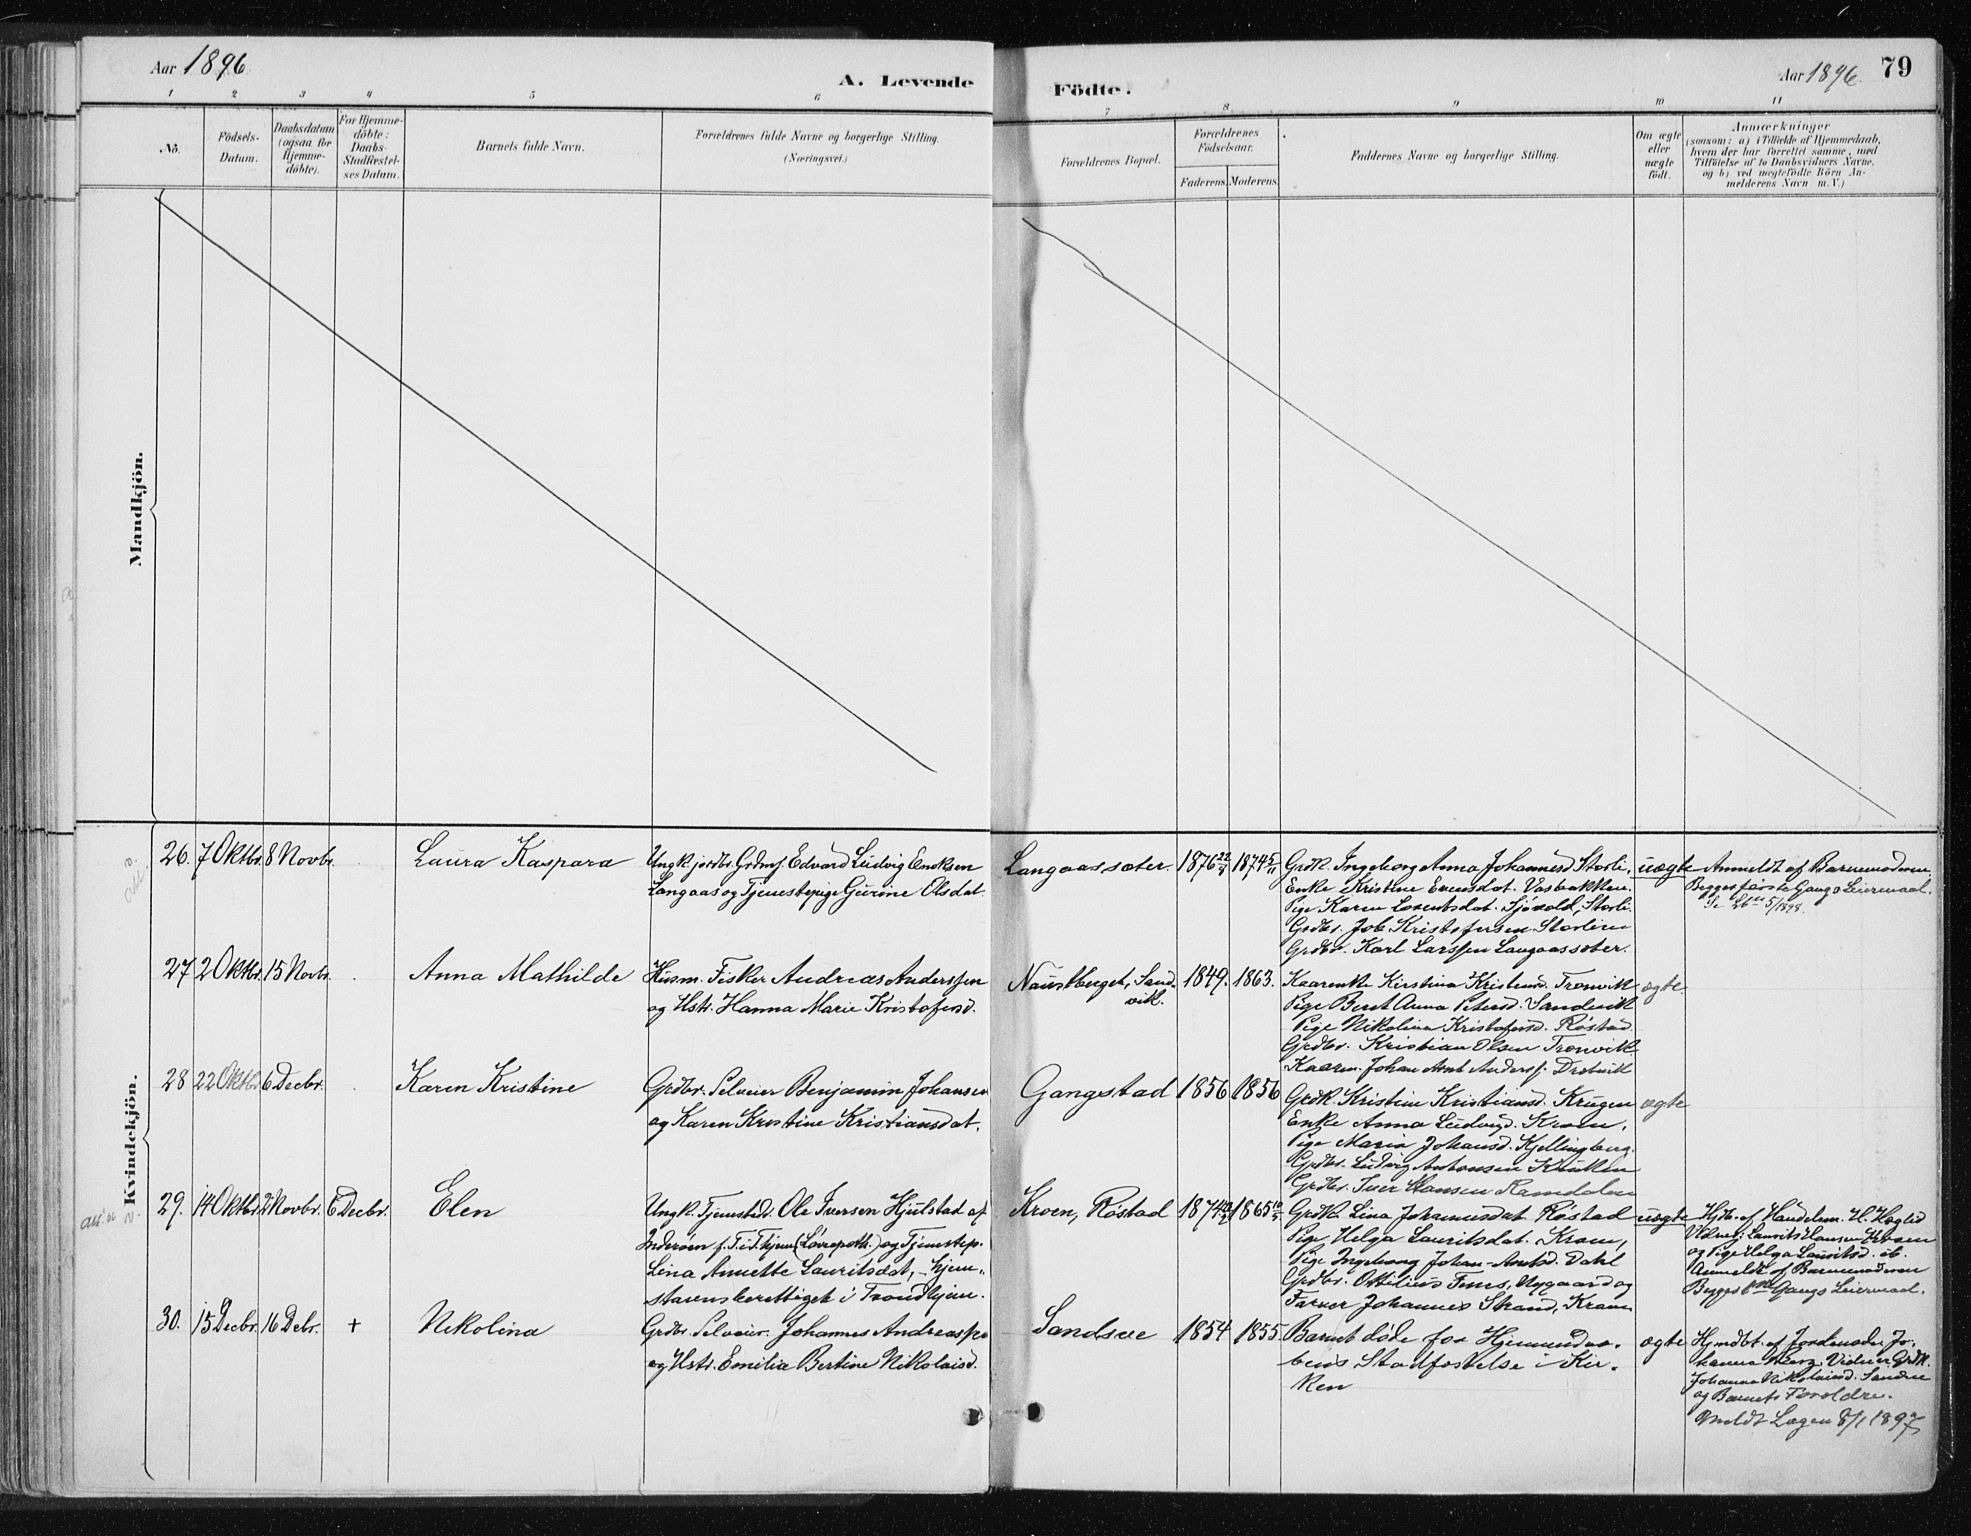 Aar 1896
A. Levende
Födte.
Aar 1896.
79
1
2
3
4
5
6
7
8
9
10
11
No.
Födsels-
Datum.
Daabsdatum
(ogsaa for
Hjemme-
döbte).
For Hjemme-
döbte:
Daabs-
Stadfæstel-
ses Datum.
Barnets fulde Navn.
Forældrenes fulde Navne og borgerlige Stilling.
(Næringsvei.)
Forældrenes Bopæl.
Forældrenes
Födselsaar.
Faderens.
Moderens.
Faddernes Navne og borgerlige Stilling.
Om ægte
eller
uægte
födt.
Anmærkninger
(saasom: a) i Tilfælde af Hjemmedaab,
hvem der har forrettet samme, med
Tilföielse af to Daabsvidners Navne.
og b) ved uægtefödte Börn An-
melderens Navn m. V.)
Mandkjön.
Kvindekjön.
26. 7 Oktbr. 8 Novbr.
Laura Kaspara
Ungk. jordbr. Grdmf. Edvard Ludvig Enoksen
Langaas og Tjenestepige Gurine Olsdat.
Langaassæter.
1876
1874
Grdk. Ingeborg Anna Johannesd Storli,
Enke Kristine Evensdat. Vasbakken.
Pige Karen Lorentsdat. Sjøvold, Storli.
Grdbr. Job Kristofersen Storlien
Grdbr. Karl Larssen Langaassæter.
uægte
Anmeldt af Barnemoderen.
Begges første Gangs Leiermaal.
27 2 Oktbr. 15 Novbr.
Anna Mathilde
Husm. Fisker Andreas Anderssen
og Hstr. Hanna Marie Kristofersd.
Naustberget, Sand-
vik.
1849. 1863.
Kaarenke Kirstina Kristensd. Tronvik
Pige Beret Anna Petersd. Sandvik
Pige Nikolina Kristofersd. Røstad
Grdbr. Kristian Olsen Tronvik
Kaarem. Johan Arnt Anderss.
ægte.
28 22 Oktbr 6 Decbr.
Karen Kristine
Grdbr. Selveier Benjamin Johansen
og Karen Kristine Kristiansdat.
Gangstad
1856 1856
Grdk. Kristine Kristiansd. Krugen
Enke Anna Ludvigd. Kroen,
Pige Maria Johansd. Kjellingberg.
Grdbr. Ludvig Antonsen
Grdbr. Iver Hansen Ramdalen
ægte
29. 14 Oktbr 2 Novbr. 6 Decbr.
Elen
Ungk. Tjenestedr. Ole Iversen Hjulstad af
Inderøen f. T. i T.hjem (Løvepoth.) og Tjenestep.
Lina Annette Lauritsdat, – hjem-
stavnsberettiget i Trondhjem.
Kroen, Røstad
1874
1865
Grdk. Lina Johannesdat Røstad
Pige Helga Lauritsdat. Kroen,
Pige Ingeborg Johan-Arntsd. Dahl
Grdbr. Ottilius Fines, Nygaard og
Farver Johannes Strand, Kroen
uægte
Hjdb. af Handelsm. H. Høglid
Vidner: Laurits Hansen Kroen
og Pige Helga Lauritsd. ib.
Anmeldt af Barnemoderen
Begges Gangs Leiermaal.
30. 15 Decbr. 16 Debr. +
Nikolina
Grdbr. Selveier. Johannes Andreass.
og Hstr. Emilia Bertine Nikolaisd.
Sandsæe
1854 1855.
Barnet døde før Hjemmedaa-
bens Stadfæstelse i Kir-
ken
ægte
Hjmdbt. af Jordemoder Jo-
hanna Berg. Vidner Grdk.
Johanna Nikolaisd. Sandsæe
og Barnets Forældre.
Anmeldt Lægen 8/1 1897